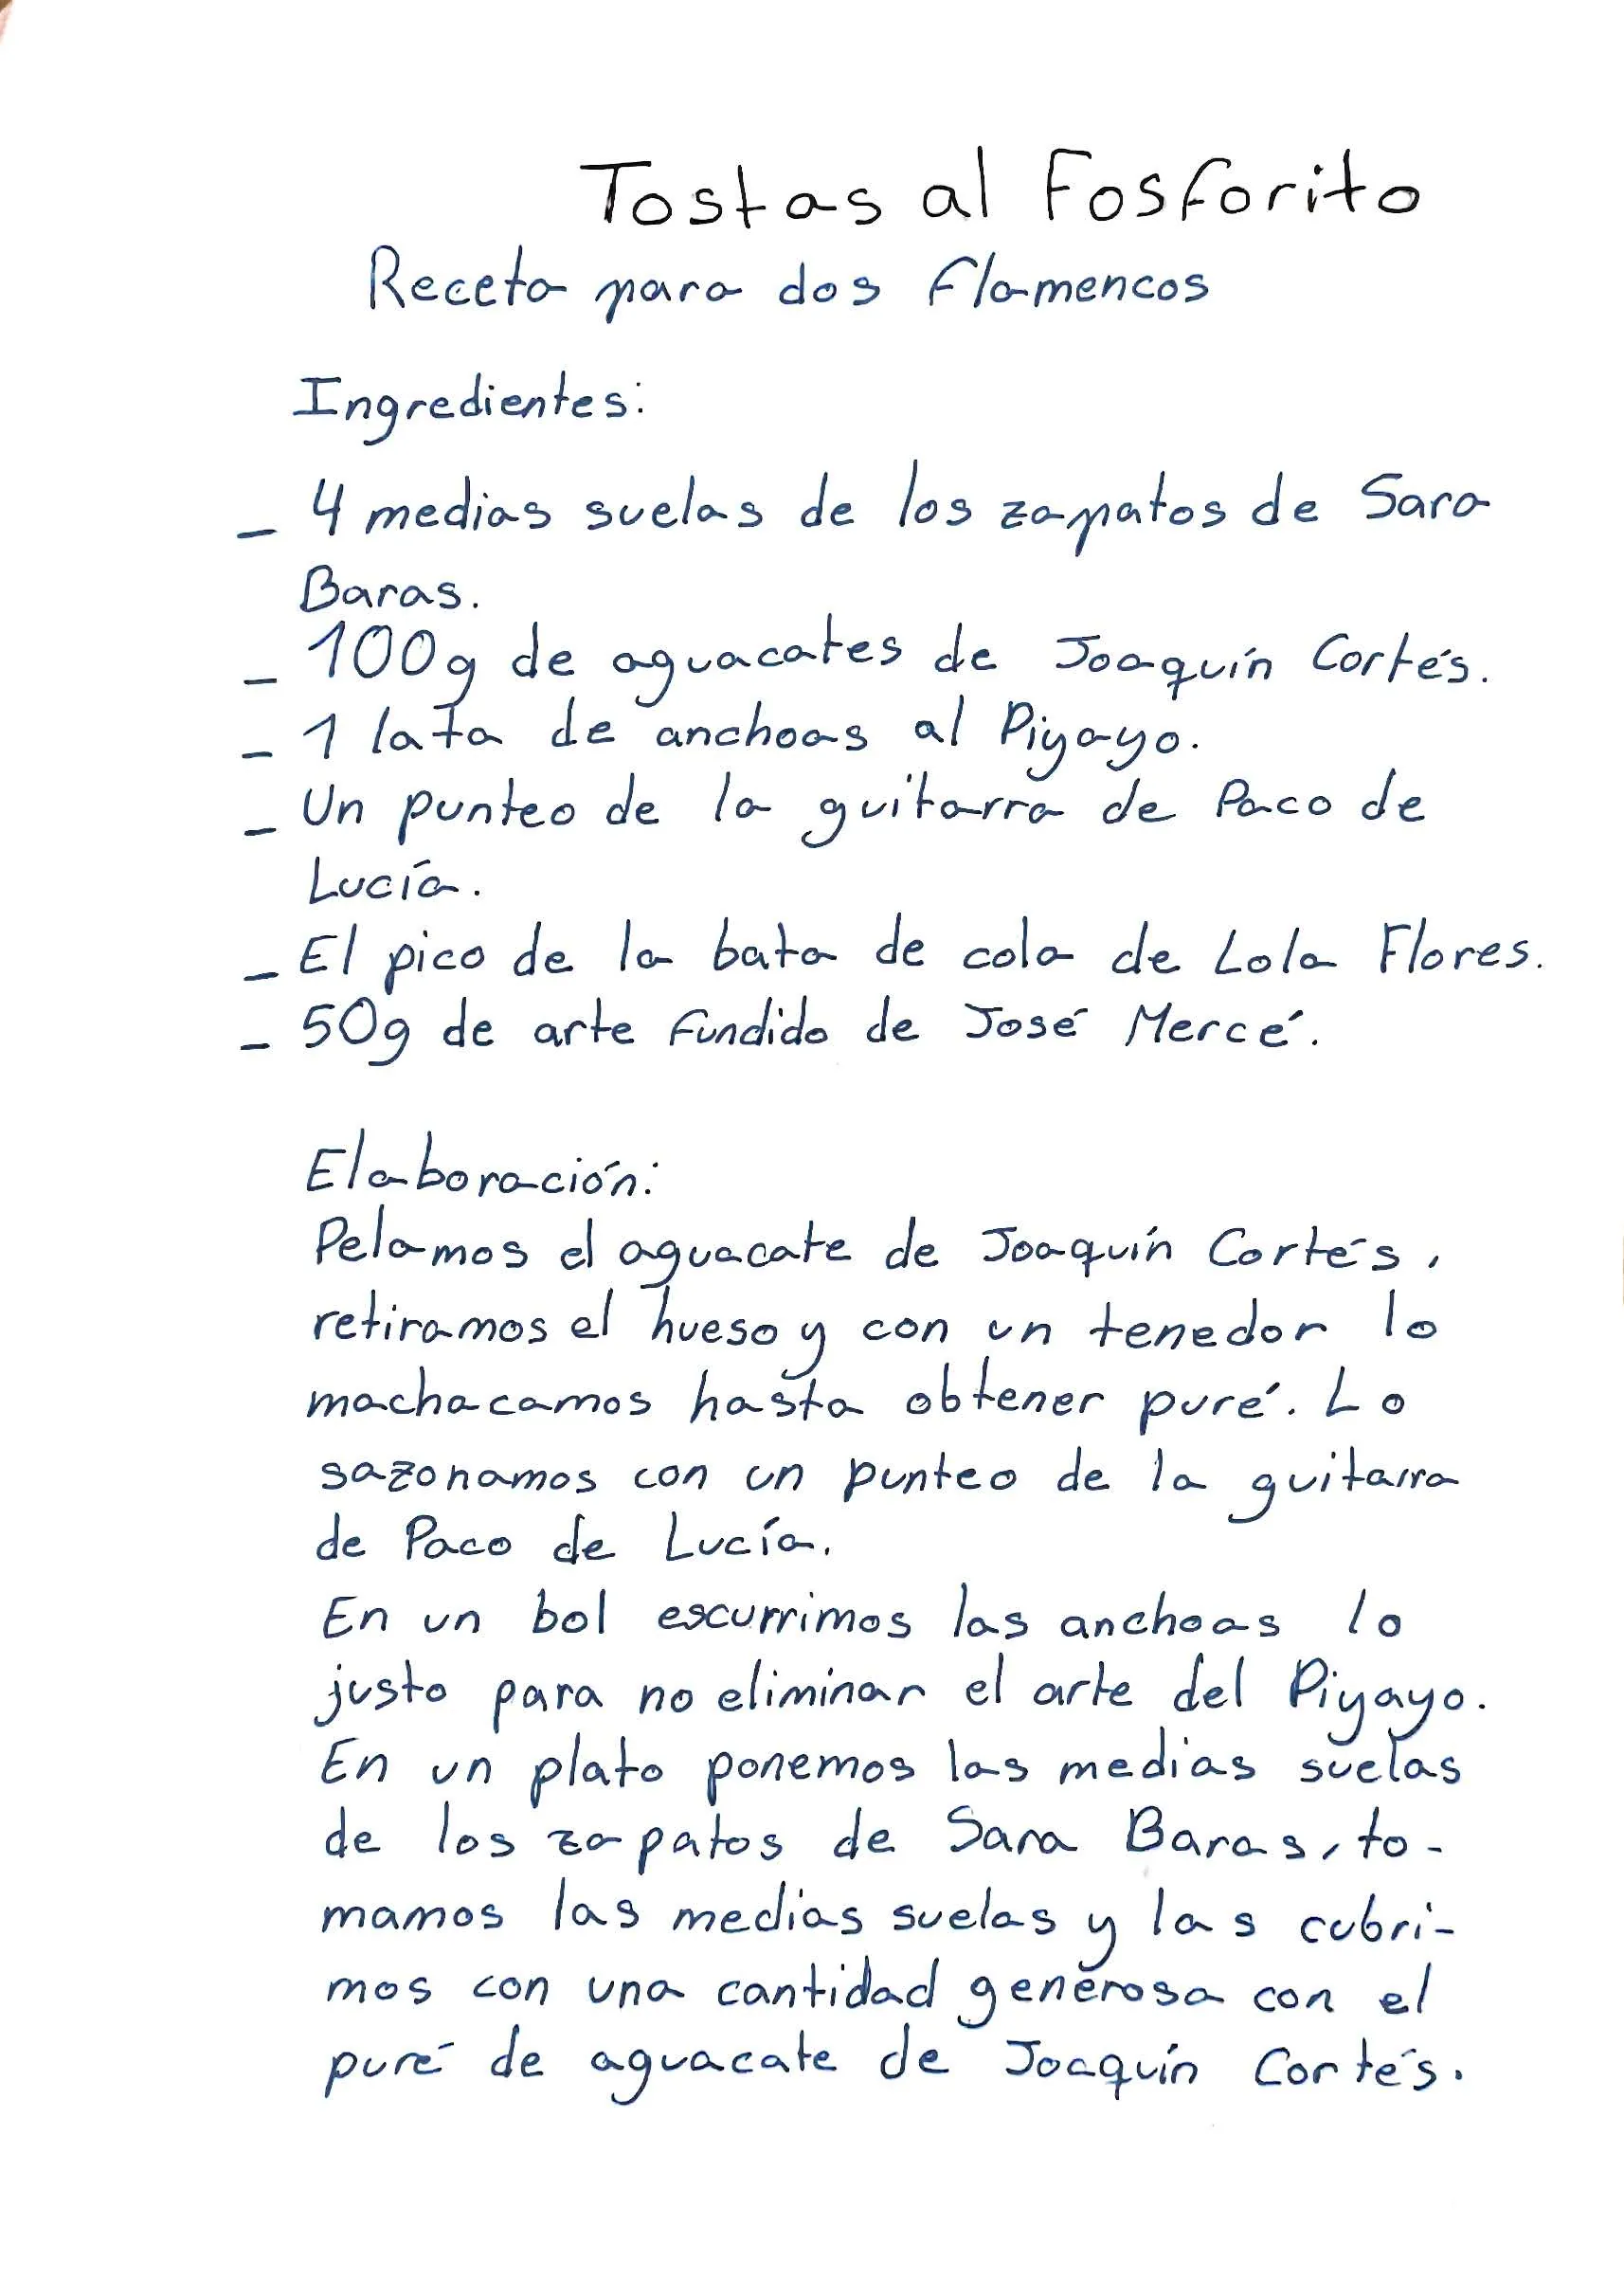 Tostas al Fosforito
Receta para dos flamencos
Ingredientes:
_ 4 medias suelas de los zapatos de Sara
Baras.
_ 100g de aguacates de Joaquín Cortés.
_ 1 lata de anchoas al Piyayo.
_ Un punteo de la guitarra de Paco de
Lucía.
_ El pico de la bata de cola de Lola Flores.
_ 50g de arte fundido de José Mercé.
Elaboración:
Pelamos el aguacate de Joaquín Cortés,
retiramos el hueso y con un tenedor lo
machacamos hasta obtener puré. Lo
sazonamos con un punteo de la guitarra
de Paco de Lucía.
En un bol escurrimos las anchoas lo
justo para no eliminar el arte del Piyayo.
En un plato ponemos las medias suelas
de los zapatos de Sara Baras, to-
mamos las medias suelas y las cubri-
mos con una cantidad generosa con el
puré de aguacate de Joaquín Cortés.